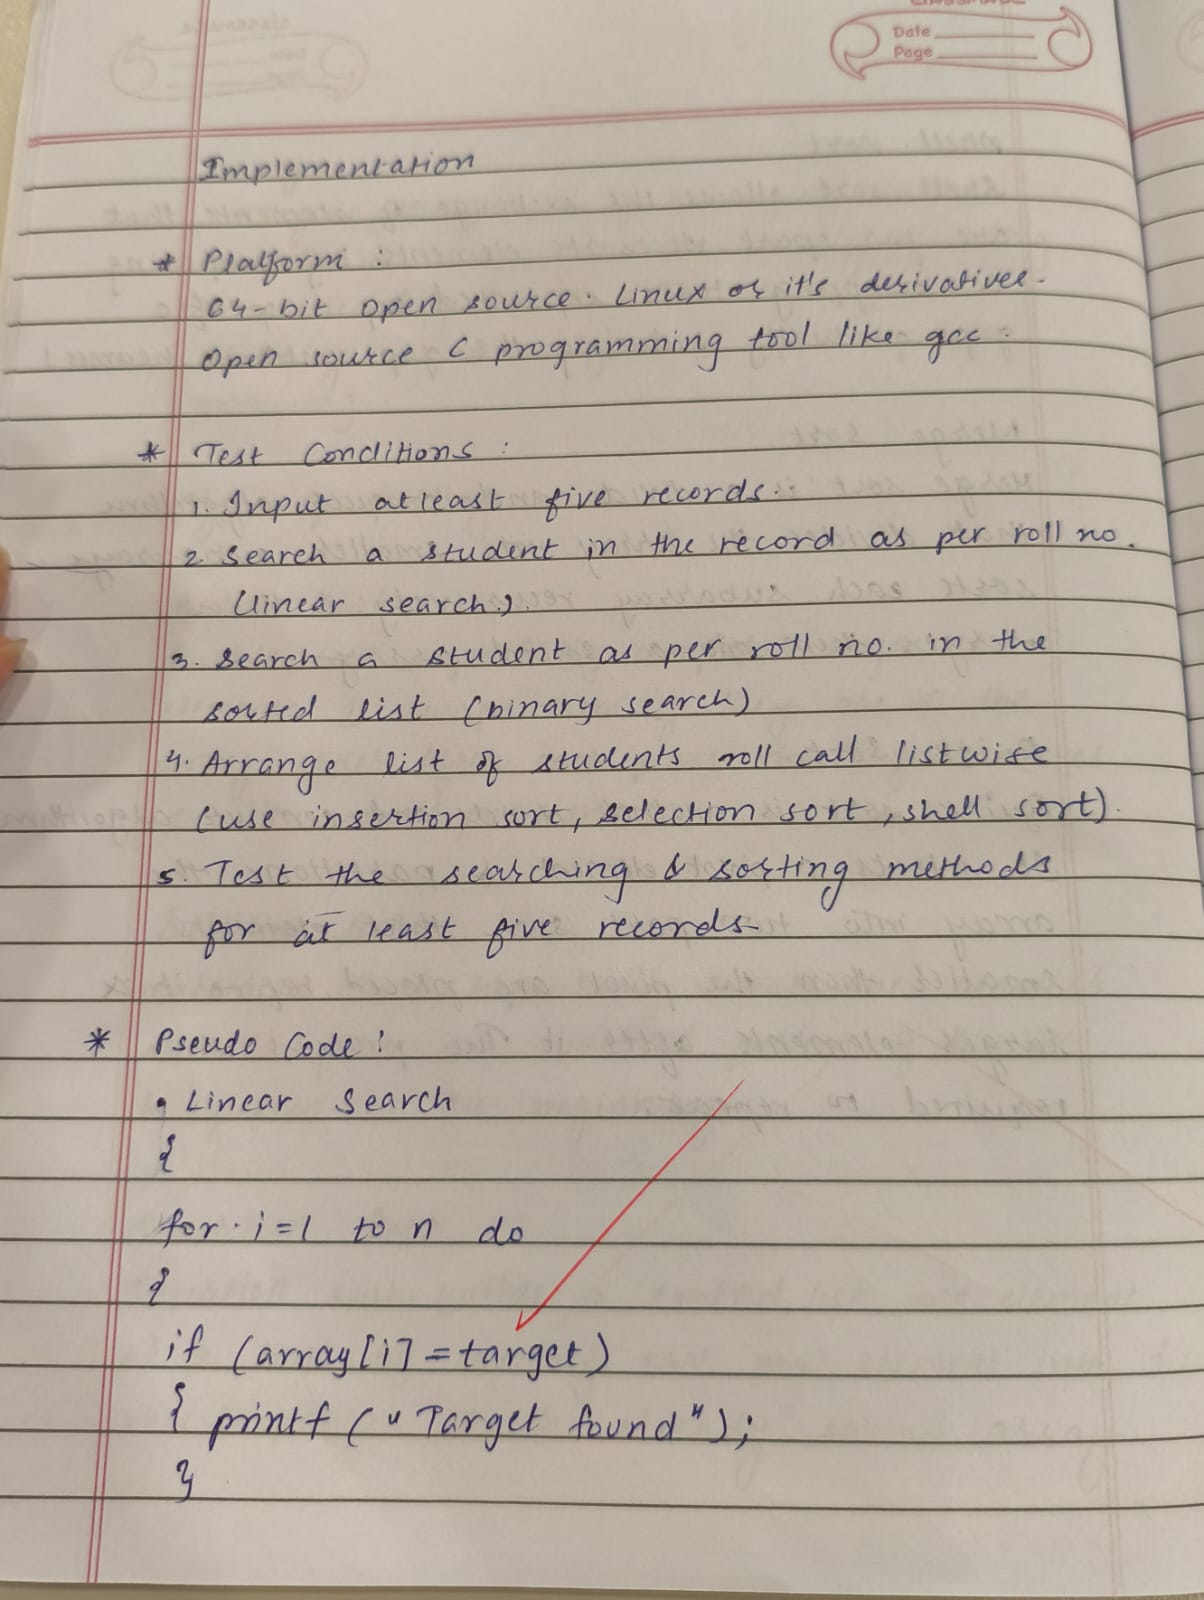 Date
Page
Implementation
* Platform :
64-bit open source. Linux or it's derivatives.
Open source C programming tool like gcc.
* Test Conditions :
1. Input atleast five records.
2 Search a student in the record as per roll no.
(linear search).
3. Search a student as per roll no. in the
sorted list (binary search)
4. Arrange list of students roll call listwise
(use insertion sort, selection sort, shell sort).
5. Test the searching & sorting methods
for at least five records
* Pseudo Code :
• Linear Search
{
for i=1 to n do
{
if (array[i]=target)
{ printf ("Target found");
}